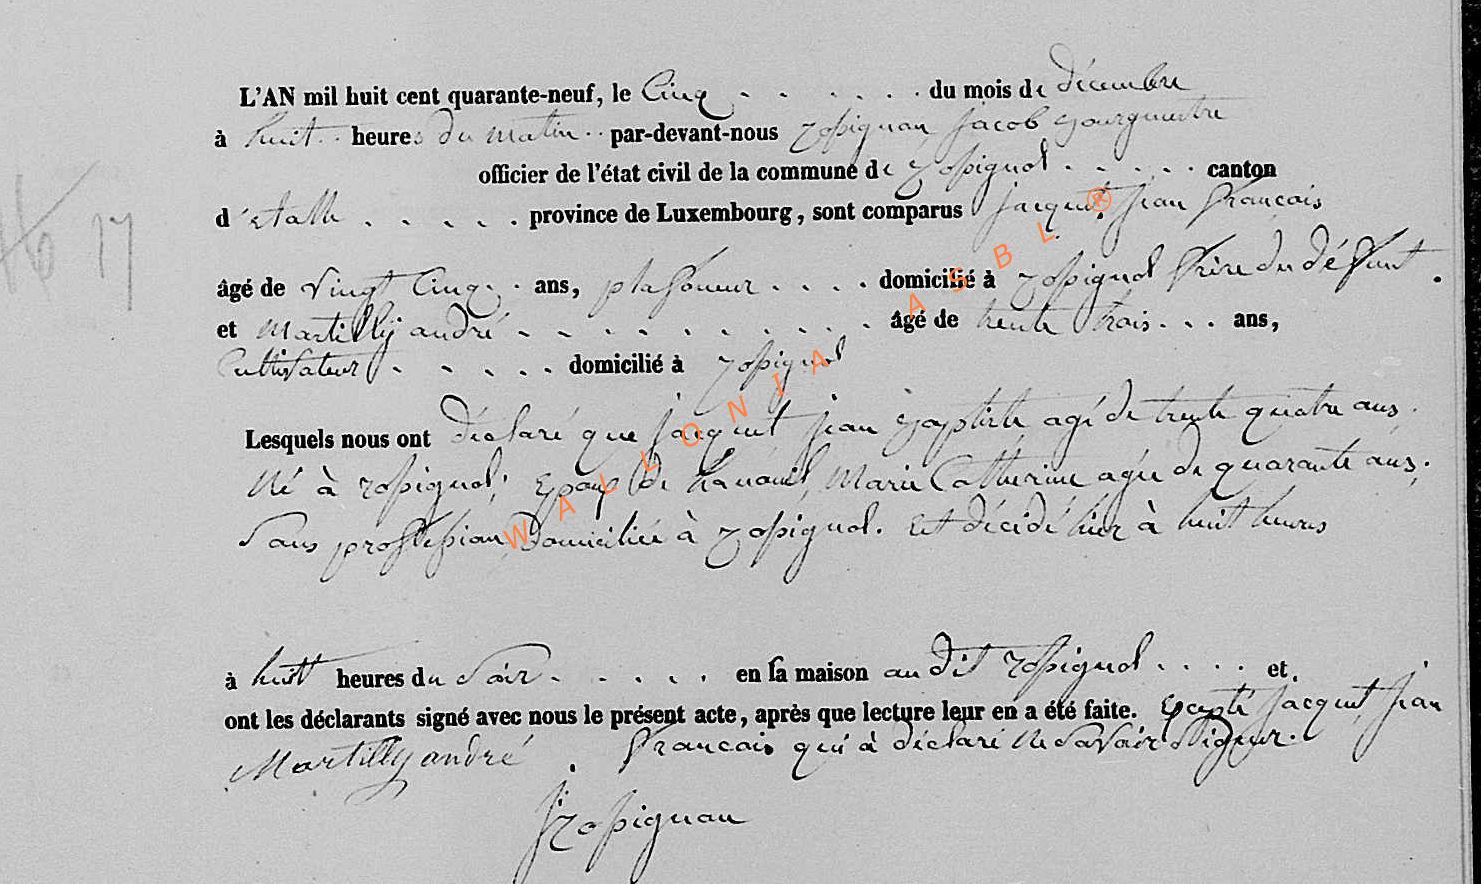 L'AN mil huit cent quarante-neuf, le Cinq . . . . . . du mois de décembre
à huit . heures du matin . . par-devant-nous rossignon Jacob Bourgmestre
officier de l'état civil de la commune de rossignol . . . . . canton
d'etalle . . . . . province de Luxembourg, sont comparus jacquet jean francois
âgé de vingt Cinq . . ans, plafoneur . . . . domicilié à rossignol frère du défunt .
et Martilly andré . . . . . . . . . . âgé de trente trois . . . ans,
Cultivateur . . . . . domicilié à rossignol
Lesquels nous ont déclaré que jacquet jean Baptiste agé de trente quatre ans .
Né à rossignol, Epoux de Marie Catherine agée de quarante ans ;
Sans proffession Domiciliée à rossignol. Et décidé hier à huit heures
à huit heures du Soir . . . . . en la maison au dit rossignol . . . . et
ont les déclarants signé avec nous le présent acte, après que lecture leur en a été faite. Excepté jacquet jean
Martilly andré . francois qui à déclaré Ne Savoir Signer.
J rossignon
No 17
WALLONIA ASBL ®